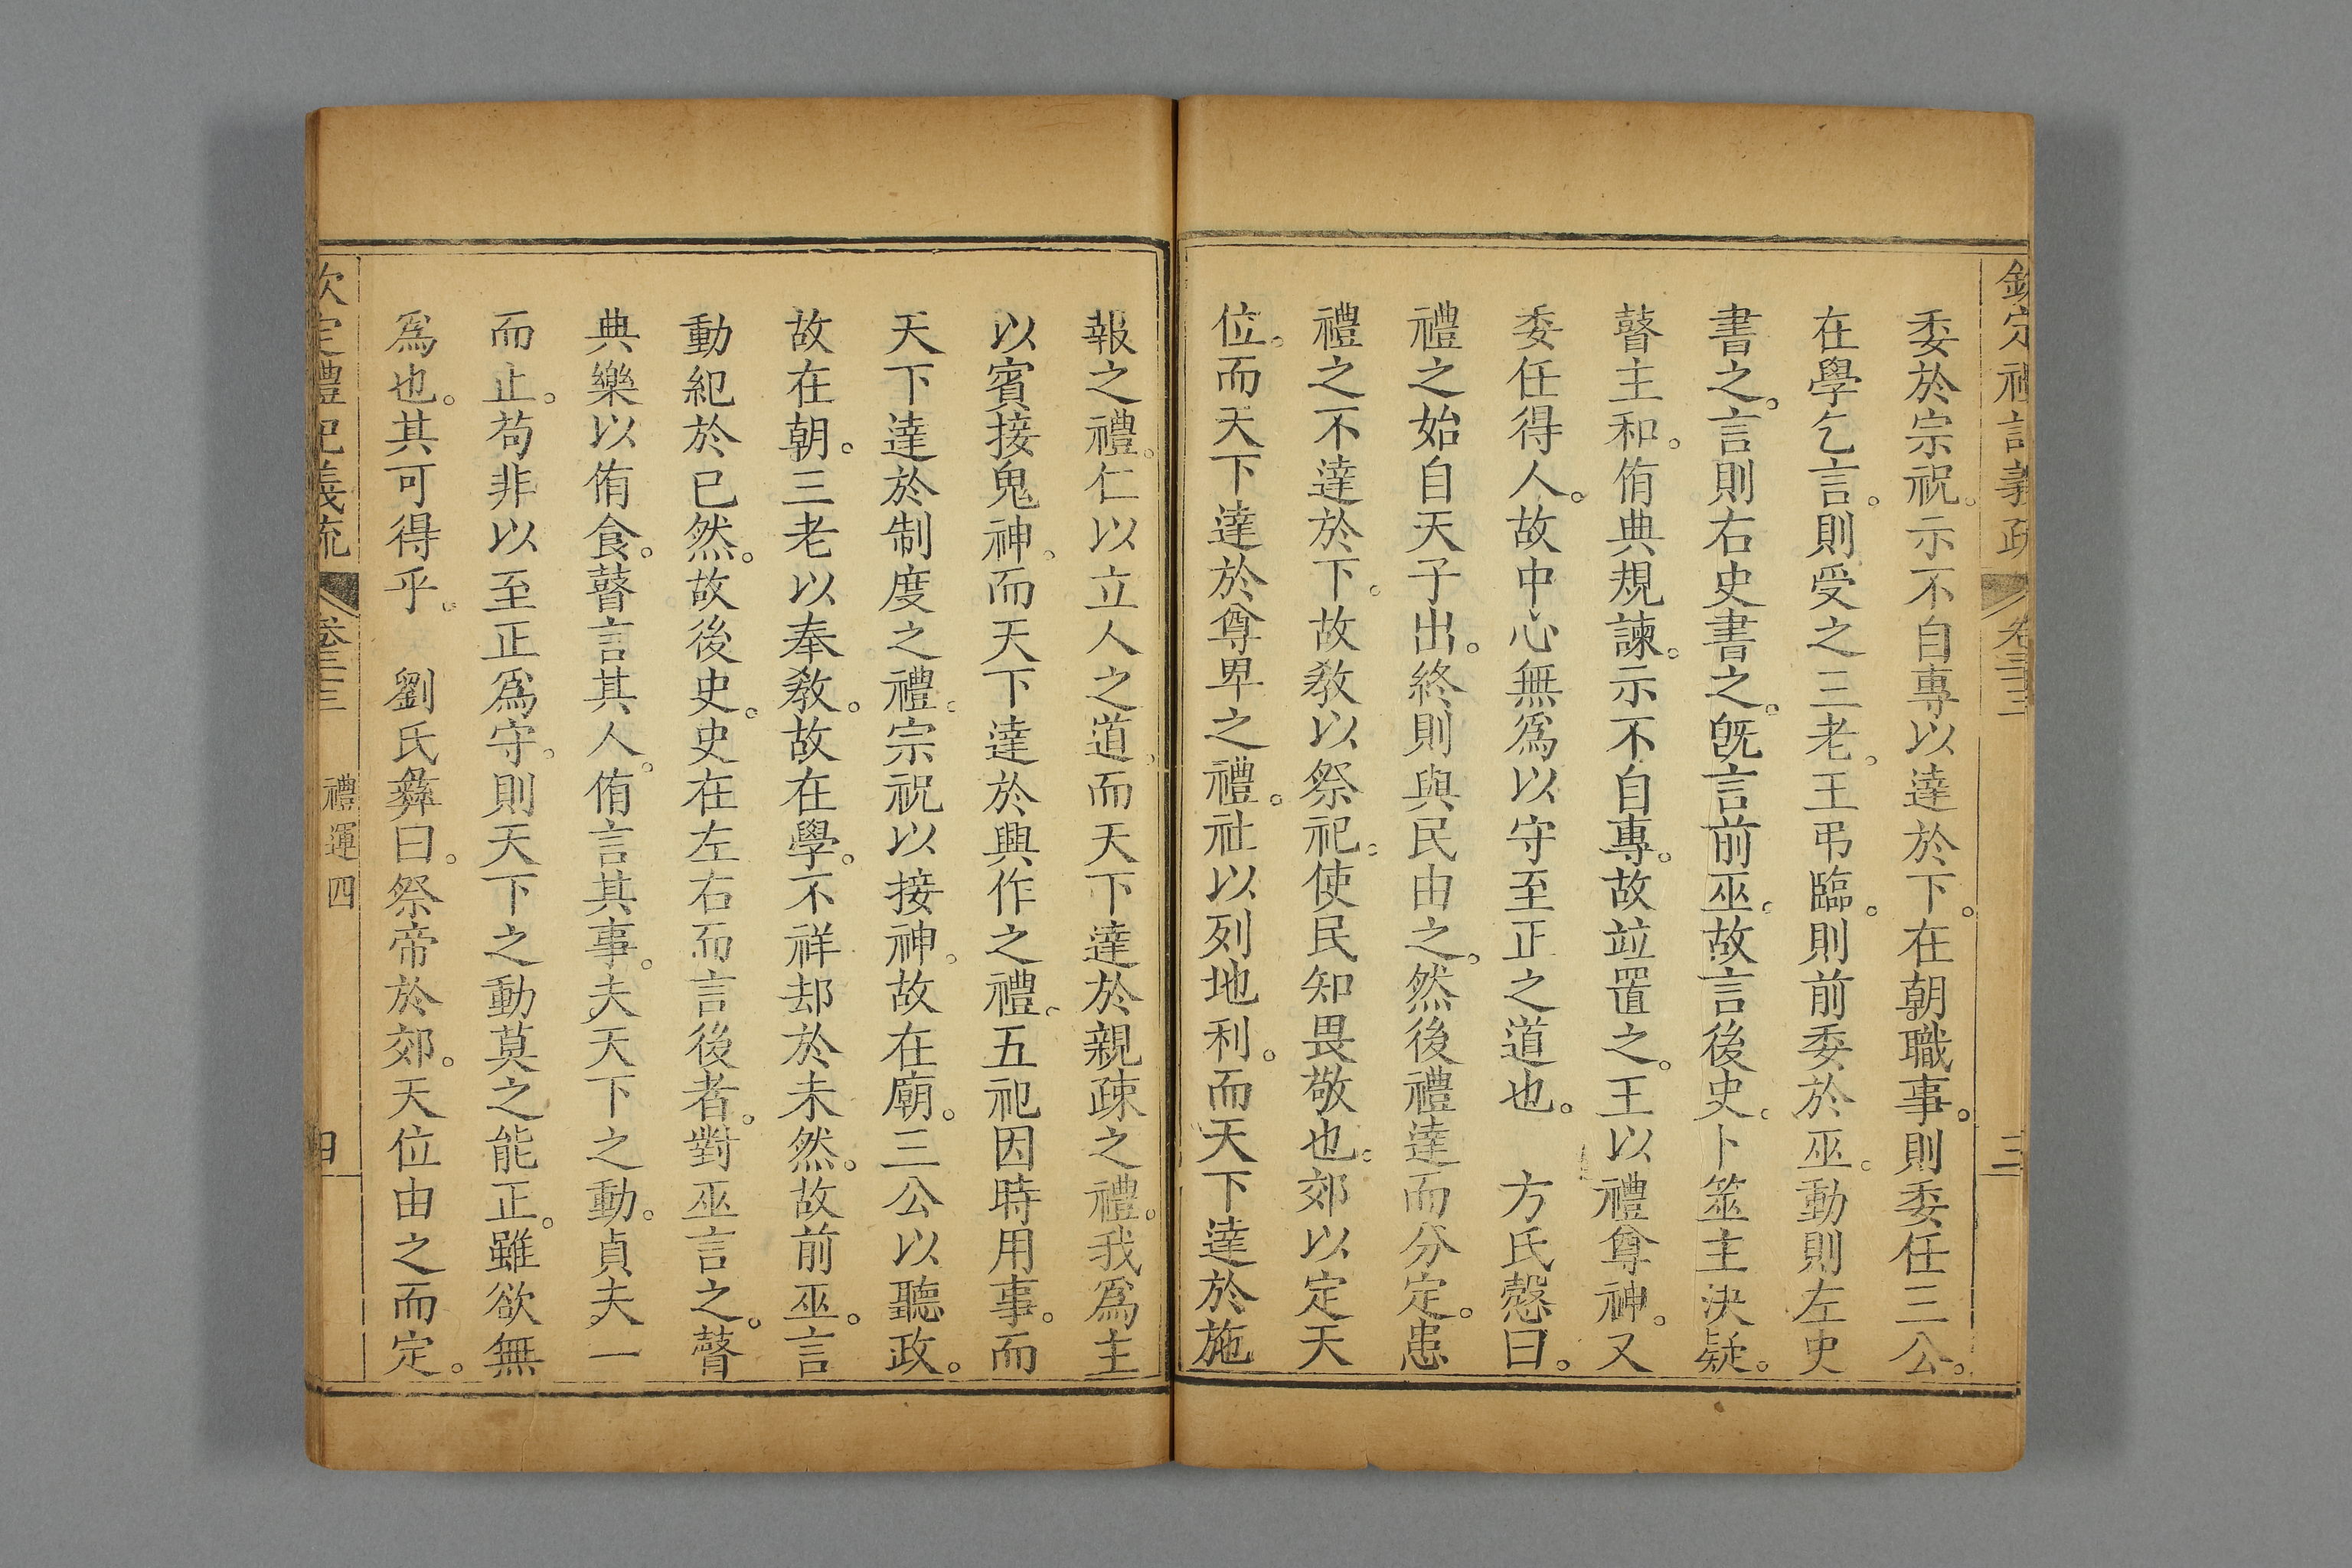 欽定禮記義疏 卷三十三 三
委於宗祝。示不自專以達於下。在朝職事。則委任三公。
在學乞言。則受之三老。王弔臨。則前委於巫。動則左史
書之。言則右史書之。旣言前巫。故言後史。卜筮主決疑。
瞽主和。侑典規諫。示不自專。故竝置之。王以禮尊神。又
委任得人。故中心無爲以守至正之道也。 方氏慤曰。
禮之始自天子出。終則與民由之。然後禮達而分定。患
禮之不達於下。故敎以祭祀。使民知畏敬也。郊以定天
位。而天下達於尊卑之禮。社以列地利。而天下達於施
報之禮。仁以立人之道。而天下達於親疎之禮。我爲主
以賓接鬼神。而天下達於興作之禮。五祀因時用事。而
天下達於制度之禮。宗祝以接神。故在廟。三公以聽政。
故在朝。三老以奉敎。故在學。不祥却於未然。故前巫。言
動紀於已然。故後史。史在左右而言後者。對巫言之。瞽
典樂以侑食。瞽言其人。侑言其事。夫天下之動。貞夫一
而止。苟非以至正爲守。則天下之動莫之能正。雖欲無
爲也。其可得乎。 劉氏彝曰。祭帝於郊。天位由之而定。
欽定禮記義疏 卷三十三 禮運四 四